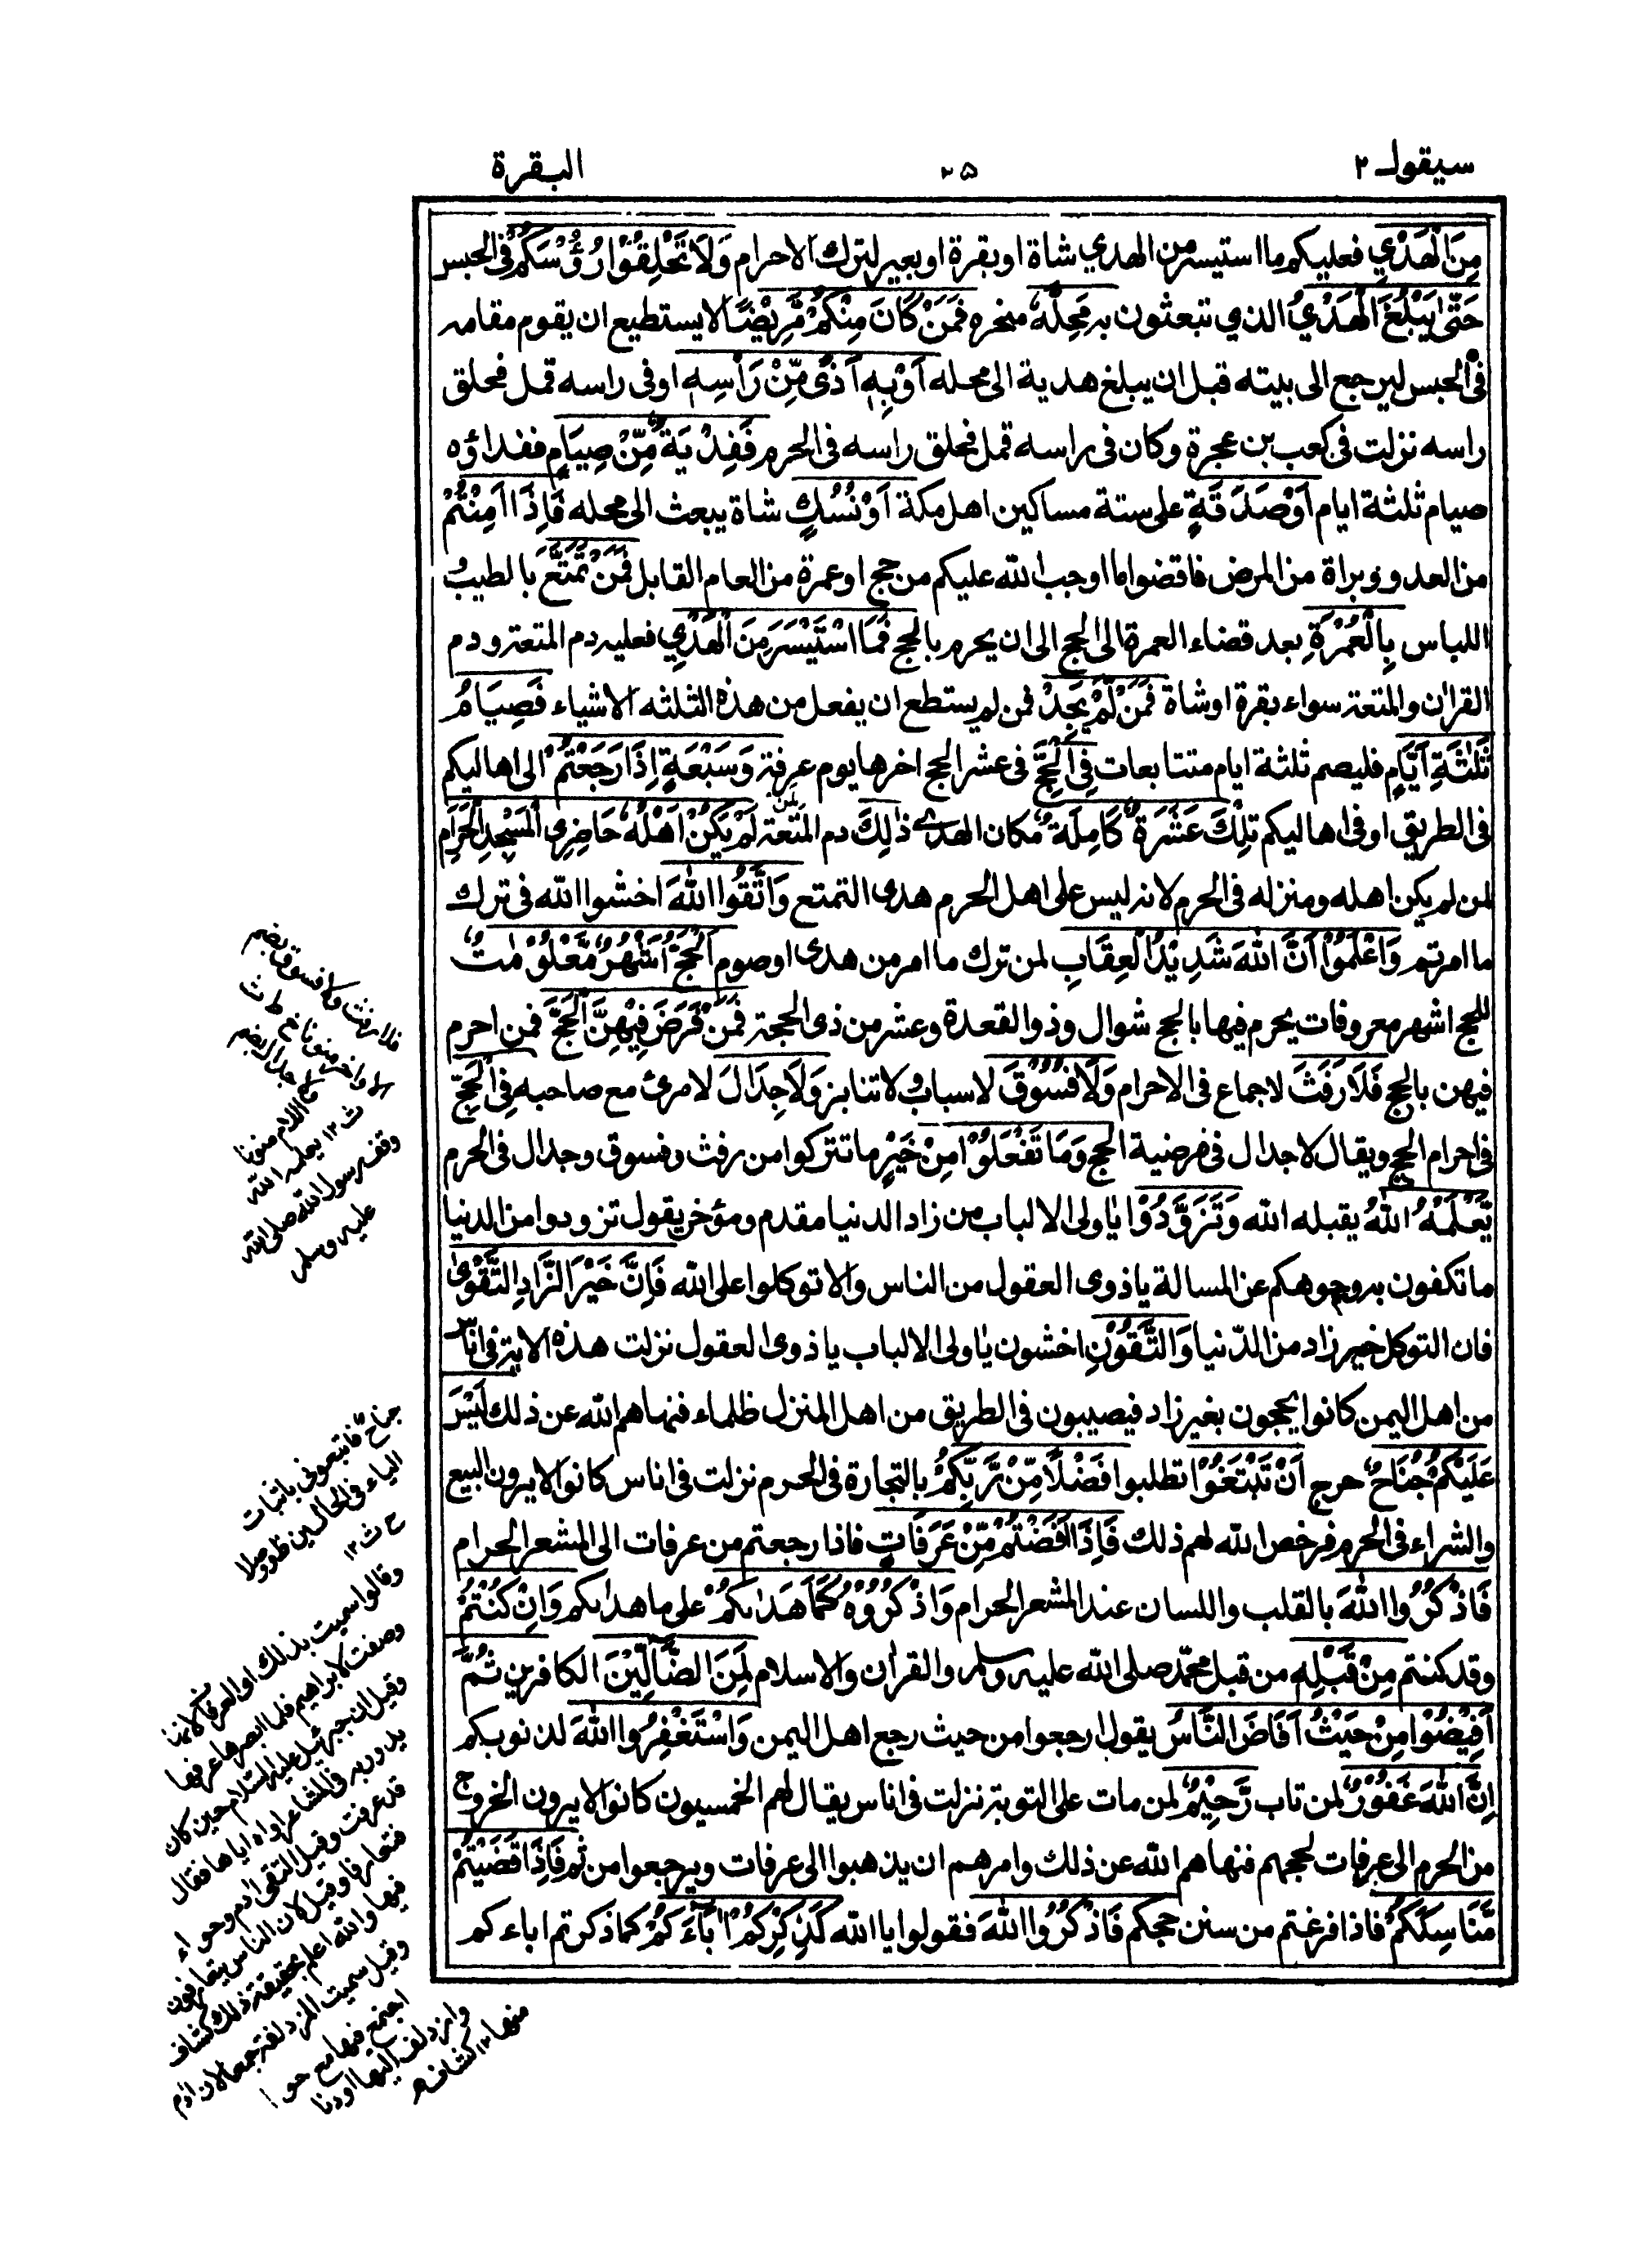 سيقول ٢
٣٥
البقرة
مِنَ الْهَدْيِ فعليكم ما استيسر من الهدي شاة او بقرة او بعير لترك الاحرام وَلَا تَحْلِقُوْا رُؤُسَكُمْ في الحبس
حَتّٰى يَبْلُغَ الْهَدْيُ الذي تبعثون به مَحِلَّهٗ منحره فَمَنْ كَانَ مِنْكُمْ مَّرِيْضًا لا يستطيع ان يقوم مقامه
فى الحبس ليرجع الى بيته قبل ان يبلغ هدية الى محله اَوْ بِهٖ اَذًى مِّنْ رَّاْسِهٖ او فى راسه قمل فحلق
راسه نزلت فى كعب بن عجرة وكان فى راسه قمل فحلق راسه فى الحرم فَفِدْيَةٌ مِّنْ صِيَامٍ ففداؤه
صيام ثلثة ايام اَوْ صَدَقَةٍ على ستة مساكين اهل مكة اَوْ نُسُكٍ شاة يبعث الى محله فَاِذَا اَمِنْتُمْ
من العدو وبراة من المرض فاقضوا ما اوجب الله عليكم من حج او عمرة من العام القابل فَمَنْ تَمَتَّعَ بالطيب و
اللباس بِالْعُمْرَةِ بعد قضاء العمرة الى الحج الى ان يحرم بالحج فَمَا اسْتَيْسَرَ مِنَ الْهَدْيِ فعليه دم المتعة ودم
القران والمتعة سواء بقرة او شاة فَمَنْ لَّمْ يَجِدْ فمن لم يستطع ان يفعل من هذه الثلثه الاشياء فَصِيَامُ
ثَلٰثَةِ اَيَّامٍ فليصم ثلثة ايام متتابعات فِي الْحَجِّ فى عشر الحج اخرها يوم عرفة وَسَبْعَةٍ اِذَا رَجَعْتُمْ الى اهاليكم
فى الطريق او فى اهاليكم تِلْكَ عَشَرَةٌ كَامِلَةٌ مكان الهدى ذٰلِكَ دم المتعة لمن لَمْ يَكُنْ اَهْلُهٗ حَاضِرِى الْمَسْجِدِ الْحَرَامِ
لمن لم يكن اهله ومنزله فى الحرم لانه ليس على اهل الحرم هدى التمتع وَاتَّقُوا اللّٰهَ اخشوا الله فى ترك
ما امرتم وَاعْلَمُوْا اَنَّ اللّٰهَ شَدِيْدُ الْعِقَابِ لمن ترك ما امر من هدى او صوم اَلْحَجُّ اَشْهُرٌ مَّعْلُوْمٰتٌ
للحج اشهر معروفات يحرم فيها بالحج شوال وذو القعدة وعشر من ذى الحجة فَمَنْ فَرَضَ فِيْهِنَّ الْحَجَّ فمن احرم
فيهن بالحج فَلَا رَفَثَ لا جماع فى الاحرام وَلَا فُسُوْقَ لا سباب و لا تنابز وَلَا جِدَالَ لا مرئ مع صاحبه فِى الْحَجِّ
فى احرام الحج ويقال لا جدال فى فرضية الحج وَمَا تَفْعَلُوْا مِنْ خَيْرٍ ما تتركوا من رفث وفسوق وجدال فى الحرم
يَّعْلَمْهُ اللّٰهُ يقبله الله وَتَزَوَّدُوْا ياولى الالباب من زاد الدنيا مقدم ومؤخر يقول تزودوا من الدنيا
ما تكفون به وجوهكم عن المسالة يا ذوى العقول من الناس والا توكلوا على الله فَاِنَّ خَيْرَ الزَّادِ التَّقْوٰى
فان التوكل خير زاد من الدنيا وَاتَّقُوْنِ اخشون ياولى الالباب يا ذوى العقول نزلت هذه الاية فى اناس
من اهل اليمن كانوا يحجون بغير زاد فيصيبون فى الطريق من اهل المنزل ظلماء فنهاهم الله عن ذلك لَيْسَ
عَلَيْكُمْ جُنَاحٌ حرج اَنْ تَبْتَغُوْا تطلبوا فَضْلًا مِّنْ رَّبِّكُمْ بالتجارة فى الحرم نزلت فى اناس كانوا لا يرون البيع
والشراء فى الحرم فرخص الله لهم ذلك فَاِذَا اَفَضْتُمْ مِّنْ عَرَفَاتٍ فاذا رجعتم من عرفات الى المشعر الحرام
فَاذْكُرُوا اللّٰهَ بالقلب واللسان عند المشعر الحرام وَاذْكُرُوْهُ كَمَا هَدٰىكُمْ على ما هدىكم وَاِنْ كُنْتُمْ
وقد كنتم مِنْ قَبْلِهٖ من قبل محمد صلى الله عليه وسلم والقران والاسلام لَمِنَ الضَّالِّيْنَ الكافرين ثُمَّ
اَفِيْضُوْا مِنْ حَيْثُ اَفَاضَ النَّاسُ يقول ارجعوا من حيث رجع اهل اليمن وَاسْتَغْفِرُوا اللّٰهَ لذنوبكم
اِنَّ اللّٰهَ غَفُوْرٌ لمن تاب رَّحِيْمٌ لمن مات على التوبة نزلت فى اناس يقال لهم الخمسيون كانوا لا يرون الخروج
من الحرم الى عرفات لحجهم فنهاهم الله عن ذلك وامرهم ان يذهبوا الى عرفات ويرجعوا من ثم فَاِذَا قَضَيْتُمْ
مَّنَاسِكَكُمْ فاذا فرغتم من سنن حجكم فَاذْكُرُوا اللّٰهَ فقولوا يا الله كَذِكْرِكُمْ اٰبَآءَكُمْ كما ذكرتم اباءكم
فلا رفث ولا فسوق بضم
ولا جدال بضم
اللام منونا
ث ١٢ يعلمه الله
وقف رسول الله صلى الله
عليه وسلم
جناح فابتغونى باثبات
الياء فى الحالين ظ ووصلا
ح ث ١٢
وقالوا سميت بذلك او العرفات لانها
وصفت لابراهيم فلما ابصرها عرفها
وقيل ان جبرئيل عليه السلام حين كان
يدور به فى المشاعر اراه اياها فقال
قد عرفت وقيل التقى ادم وحواء
فتعارفا وقيل لان الناس يتعارفون
فيها والله اعلم بحقيقة ذلك كشاف
وقيل سميت المزدلفة جمعا لان ادم
اجتمع فيها مع حوا
وازدلف اليها او دنا
منها ١٢ كشاف